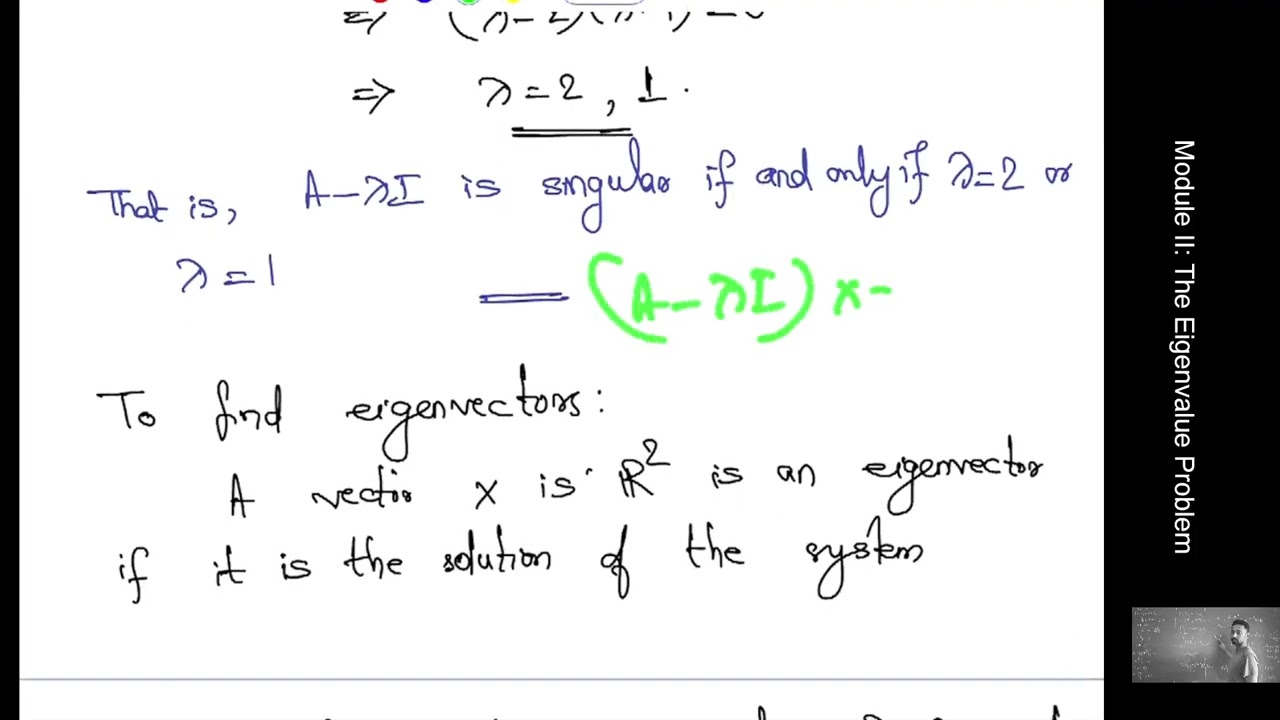 ⇒ λ = 2 , 1 .
That is, A - λI is singular if and only if λ = 2 or
λ = 1
(A - λI) x -
To find eigenvectors:
A vector x is ℝ² is an eigenvector
if it is the solution of the system
Module II: The Eigenvalue Problem